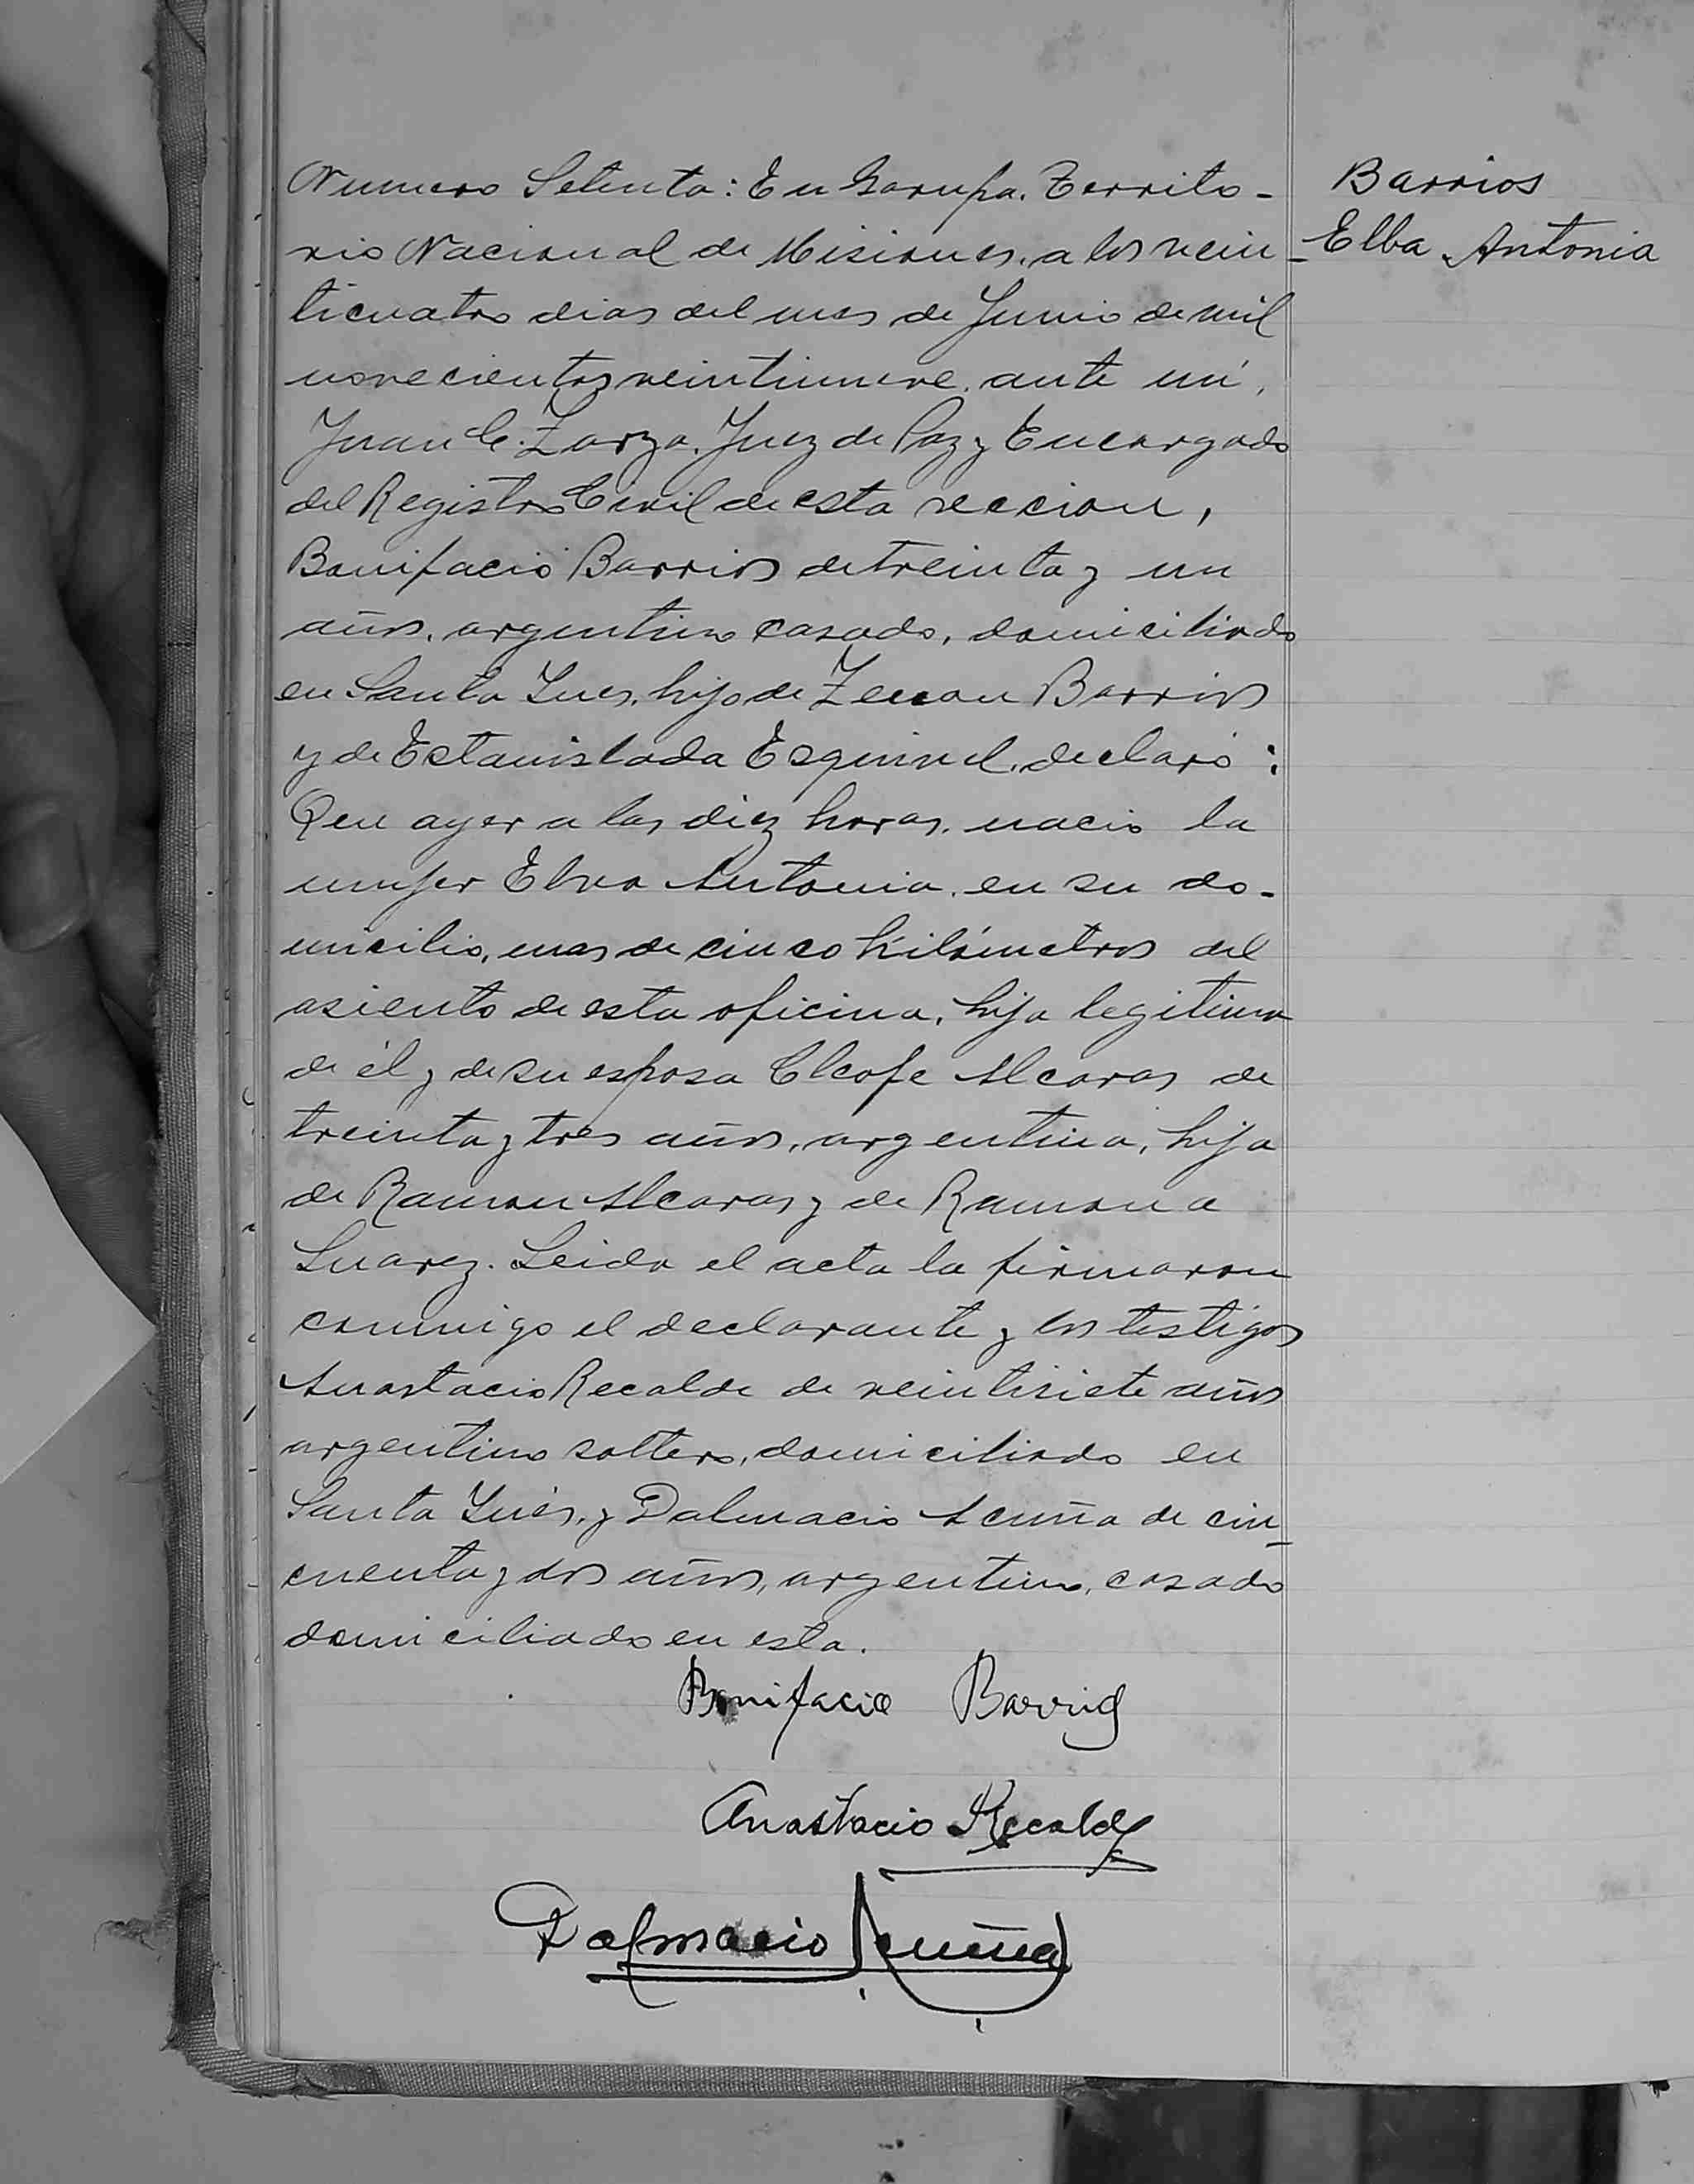 Numero Setenta: En Garupa. Territo-
rio Nacional de Misiones, a los vein-
ticuatro dias del mes de Junio de mil
novecientos veintinueve, ante mí,
Juan C. Zarza, Juez de Paz y Encargado
del Registro Civil de esta seccion,
Bonifacio Barrios de treinta y un
años, argentino casado, domiciliado
en Santa Ines, hijo de Zenon Barrios
y de Estanislada Esquivel, declaró:
Que ayer a las diez horas, nació la
mujer Elva Antonia, en su do-
micilio, mas de cinco kilómetros del
asiento de esta oficina, hija legitima
de él y de su esposa Cleofe Alcaras de
treinta y tres años, argentina, hija
de Ramon Alcaras y de Ramona
Suarez. Leida el acta la firmaron
conmigo el declarante y los testigos
Anastacio Recalde de veintisiete años
argentino soltero, domiciliado en
Santa Inés, y Dalmacio Acuña de cin-
cuenta y dos años, argentino, casado
domiciliado en esta.
Bonifacio Barrios
Anastacio Recalde
Dalmacio Acuña
Barrios
Elba Antonia